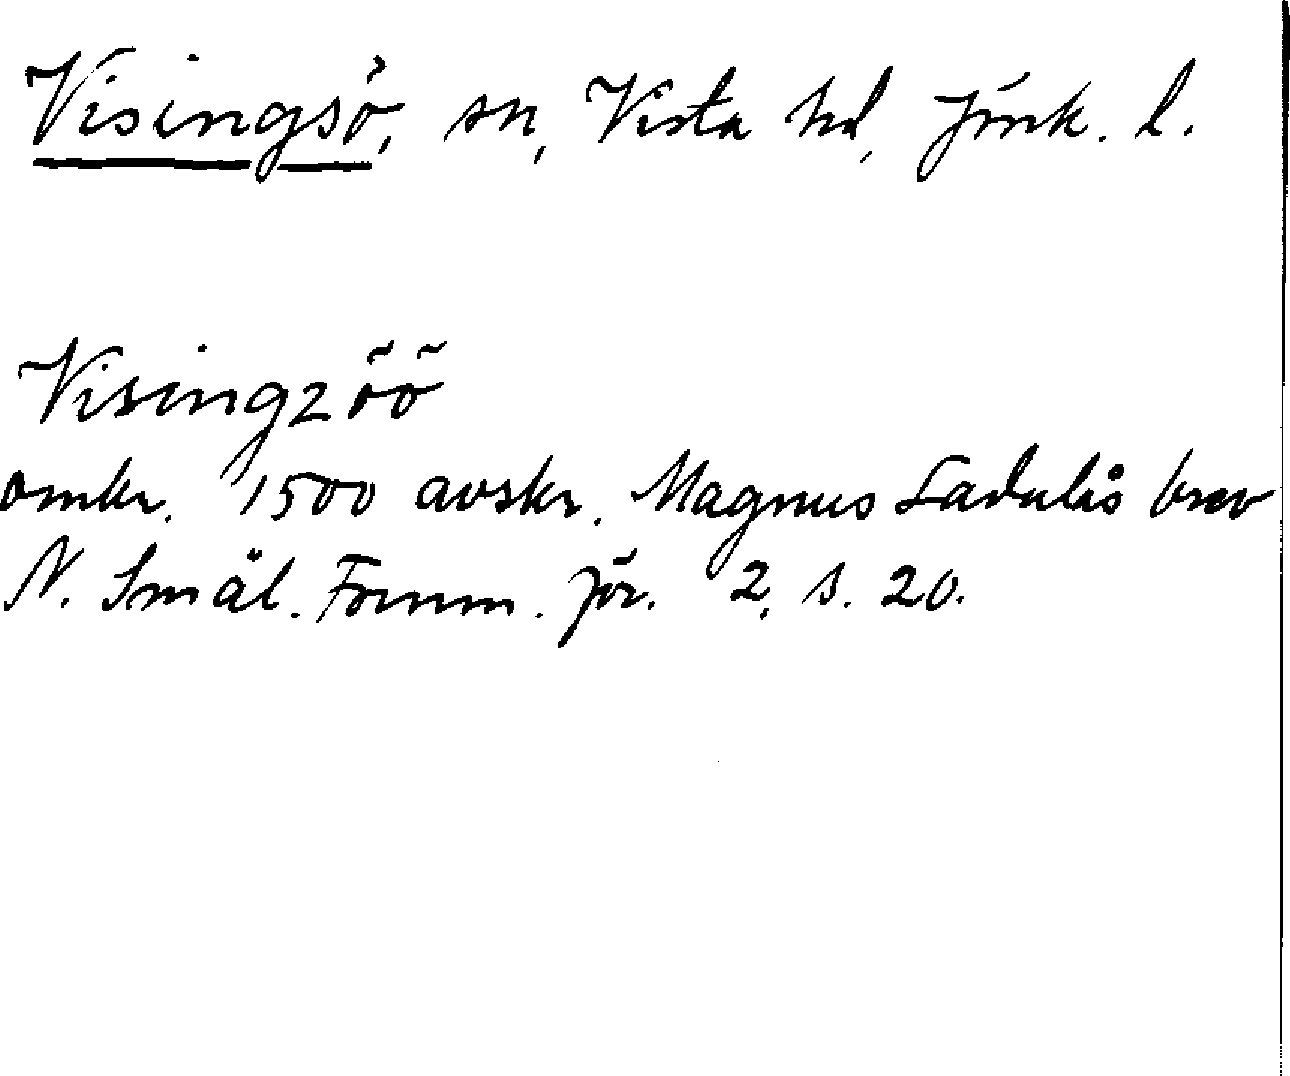 Visingsö, sn, Vista hd, Jönk. l.
Visingzöö
omkr. 1500 avskr. Magnus Ladulås brev
N. Smål. Fornm.för. 2, s. 20.